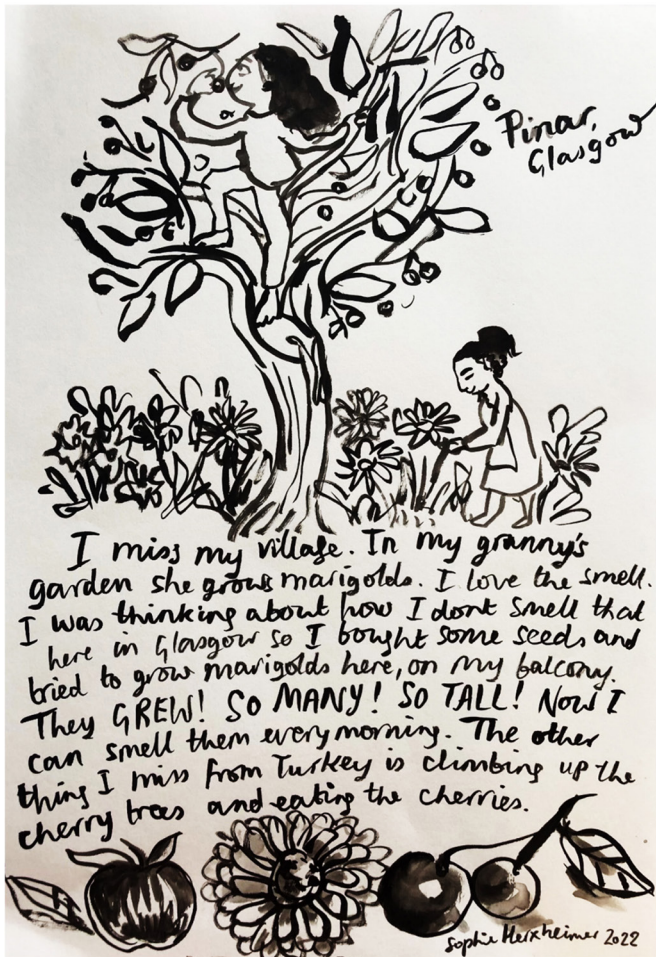 Pinar,
Glasgow
I miss my village. In my granny's
garden she grows marigolds. I love the smell.
I was thinking about how I dont smell that
here in Glasgow so I bought some seeds and
tried to grow marigolds here, on my balcony.
They GREW! SO MANY! SO TALL! Now I
can smell them every morning. The other
thing I miss from Turkey is climbing up the
cherry trees and eating the cherries.
Sophie Herxheimer 2022